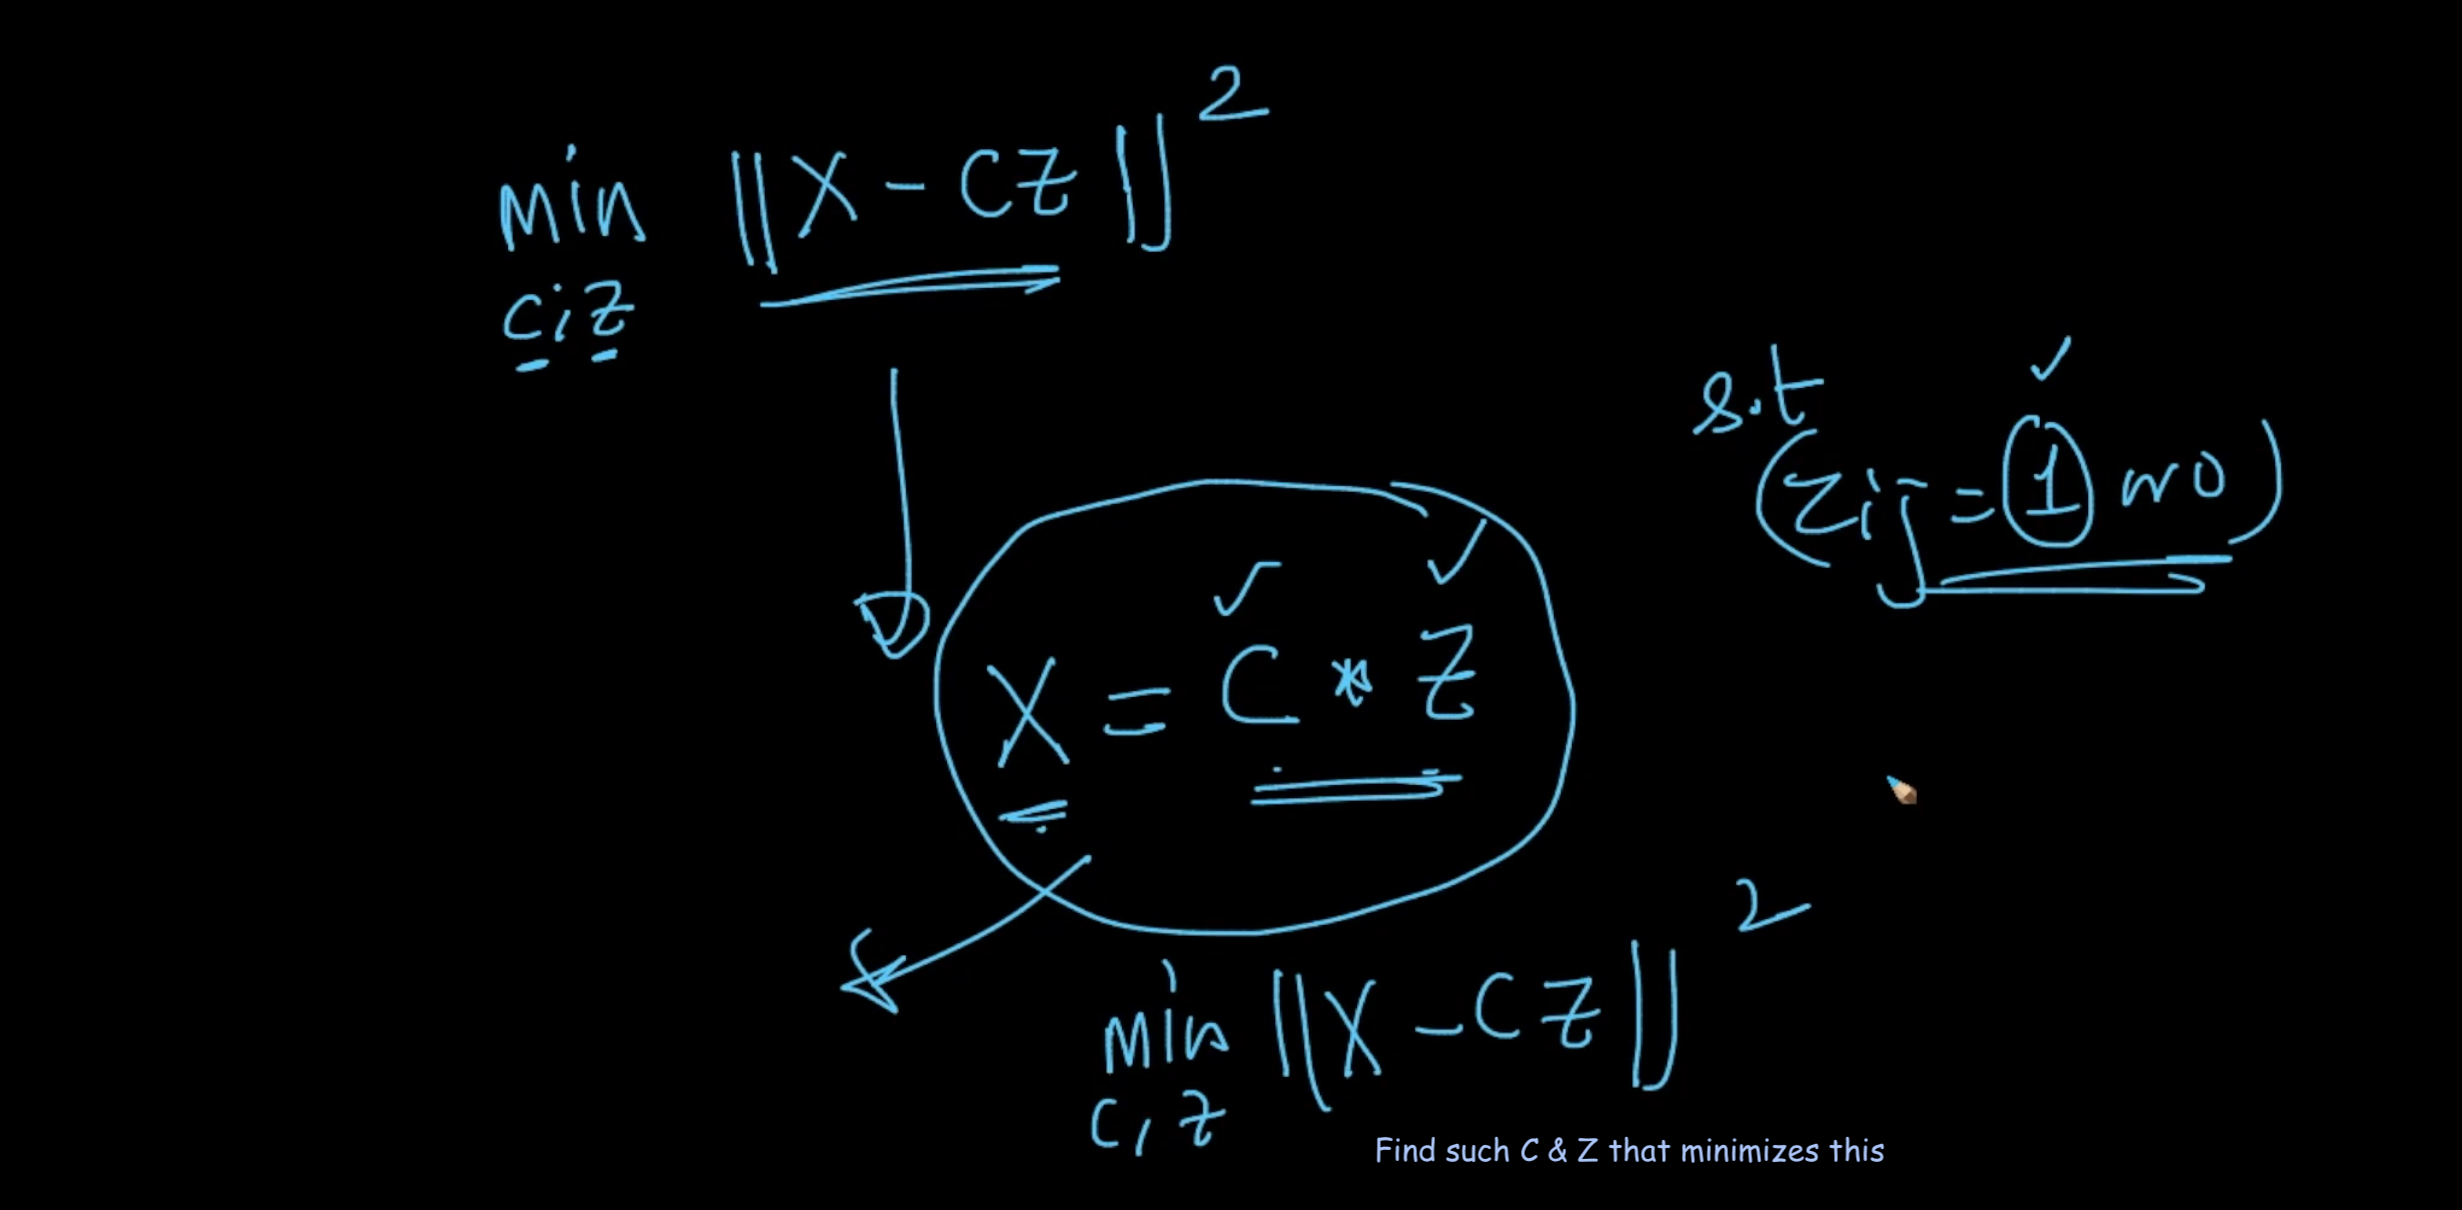 min ||X - CZ||²
C, Z
s.t
(Zij = 1 or 0)
X = C * Z
min ||X - CZ||²
C, Z
Find such C & Z that minimizes this